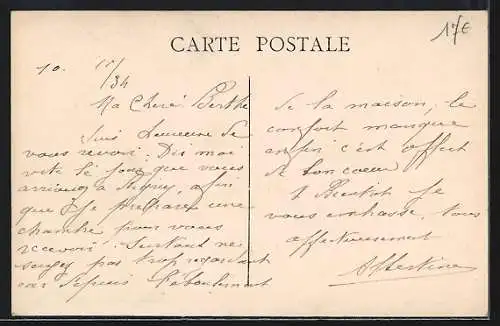 CARTE POSTALE
17€
10.
11/34
Ma Chere Berthe
Suis heureuse de
vous revoir. Dis moi
vite le jour que vous
arriverez a afin
que Je prepare une
chambre pour vous
recevoir. Surtout ne
songez pas trop regardant
car depuis
de la maison, le
confort manque
enfin c'est offert
de bon coeur
a Bientot je
vous embrasse, tous
affectueusement
Albertine